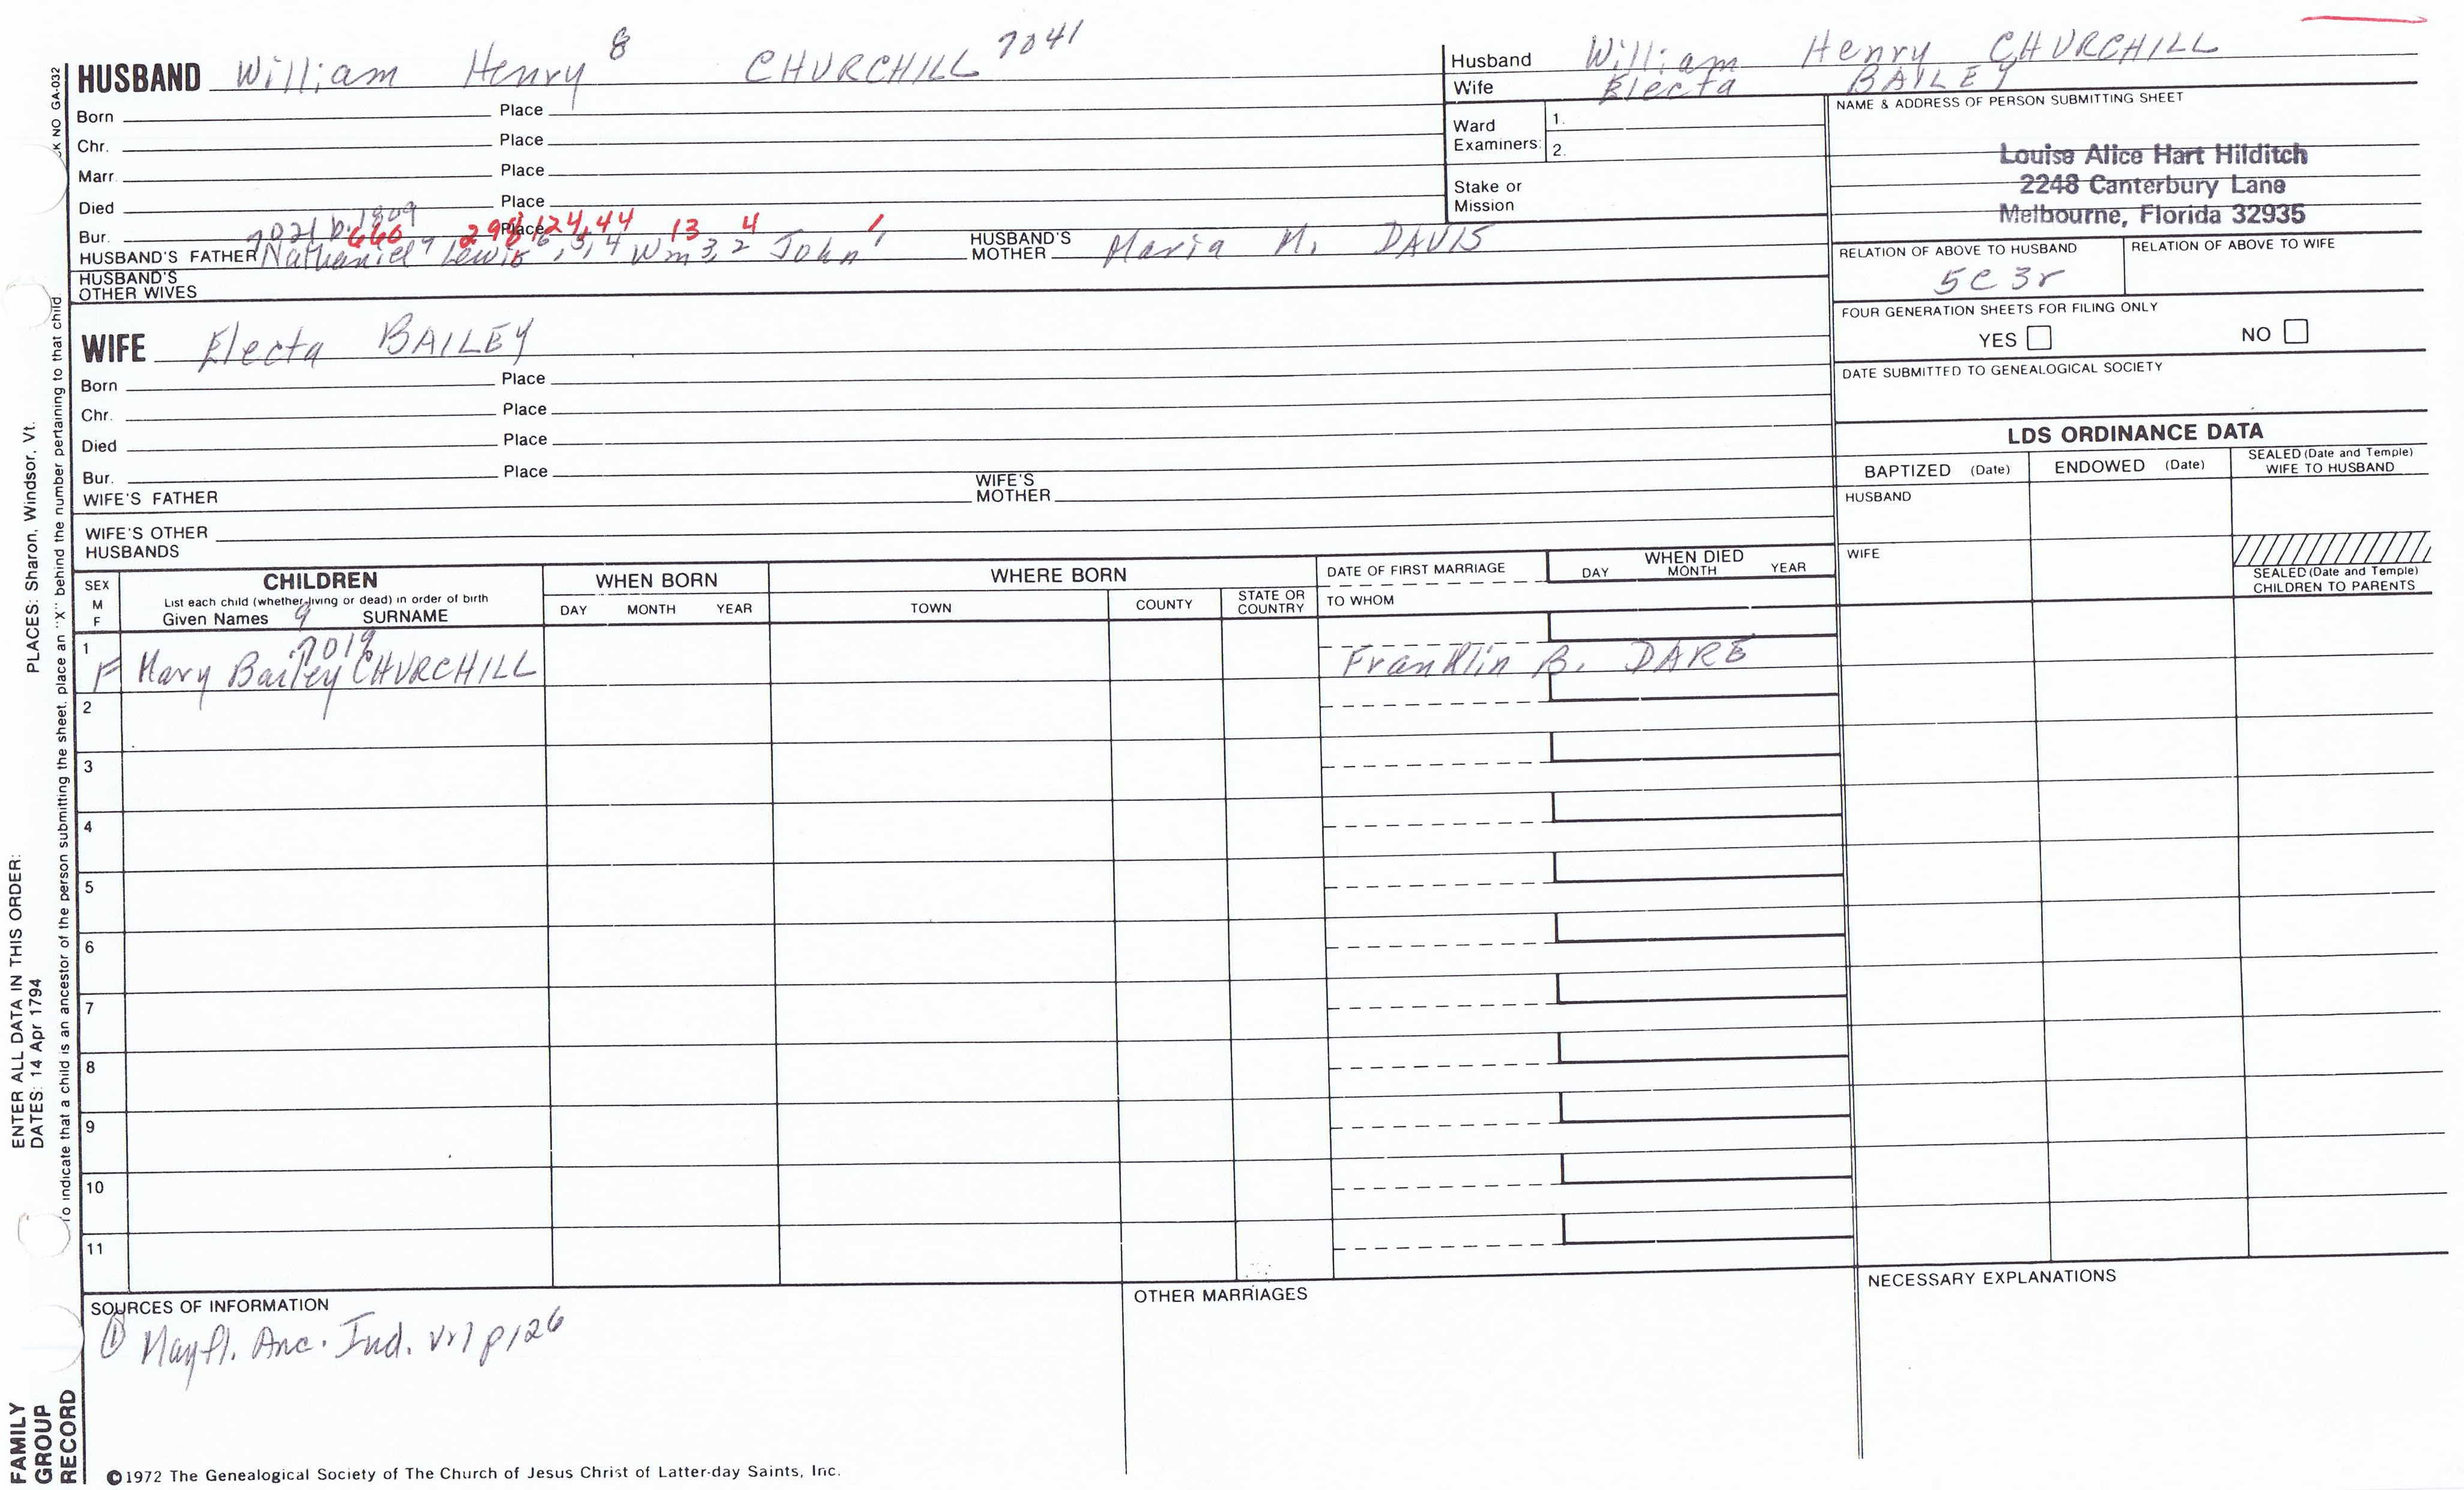 HUSBAND William Henry 8 CHURCHILL 7041
Born Place
Chr. Place
Marr. Place
Died Place
7021 b. 1809
Bur. Place
660 298, 124, 44 13 4 1
HUSBAND'S FATHER Nathaniel 7 Lewis 6, 5, 4 Wm 3, 2 John 1 HUSBAND'S MOTHER Maria M. DAVIS
HUSBAND'S OTHER WIVES
WIFE Electa BAILEY
Born Place
Chr. Place
Died Place
Bur. Place
WIFE'S FATHER WIFE'S MOTHER
WIFE'S OTHER HUSBANDS
Husband William Henry CHURCHILL
Wife Electa BAILEY
Ward Examiners: 1.
2.
Stake or Mission
NAME & ADDRESS OF PERSON SUBMITTING SHEET
Louise Alice Hart Hilditch
2248 Canterbury Lane
Melbourne, Florida 32935
RELATION OF ABOVE TO HUSBAND RELATION OF ABOVE TO WIFE
5C 3r
FOUR GENERATION SHEETS FOR FILING ONLY
YES NO
DATE SUBMITTED TO GENEALOGICAL SOCIETY
LDS ORDINANCE DATA
BAPTIZED (Date) ENDOWED (Date) SEALED (Date and Temple) WIFE TO HUSBAND
HUSBAND
WIFE
SEALED (Date and Temple) CHILDREN TO PARENTS
SEX M F
CHILDREN
List each child (whether living or dead) in order of birth
Given Names 9 SURNAME
WHEN BORN
DAY MONTH YEAR
WHERE BORN
TOWN COUNTY STATE OR COUNTRY
DATE OF FIRST MARRIAGE
TO WHOM
WHEN DIED
DAY MONTH YEAR
1
F Mary Bailey CHURCHILL Franklin B. DARE
2
3
4
5
6
7
8
9
10
11
SOURCES OF INFORMATION
① Mayfl. Anc. Ind. Vol p126
OTHER MARRIAGES
NECESSARY EXPLANATIONS
©1972 The Genealogical Society of The Church of Jesus Christ of Latter-day Saints, Inc.
CK NO GA-032
To indicate that a child is an ancestor of the person submitting the sheet, place an "X" behind the number pertaining to that child.
ENTER ALL DATA IN THIS ORDER:
DATES: 14 Apr 1794 PLACES: Sharon, Windsor, Vt.
FAMILY
GROUP
RECORD